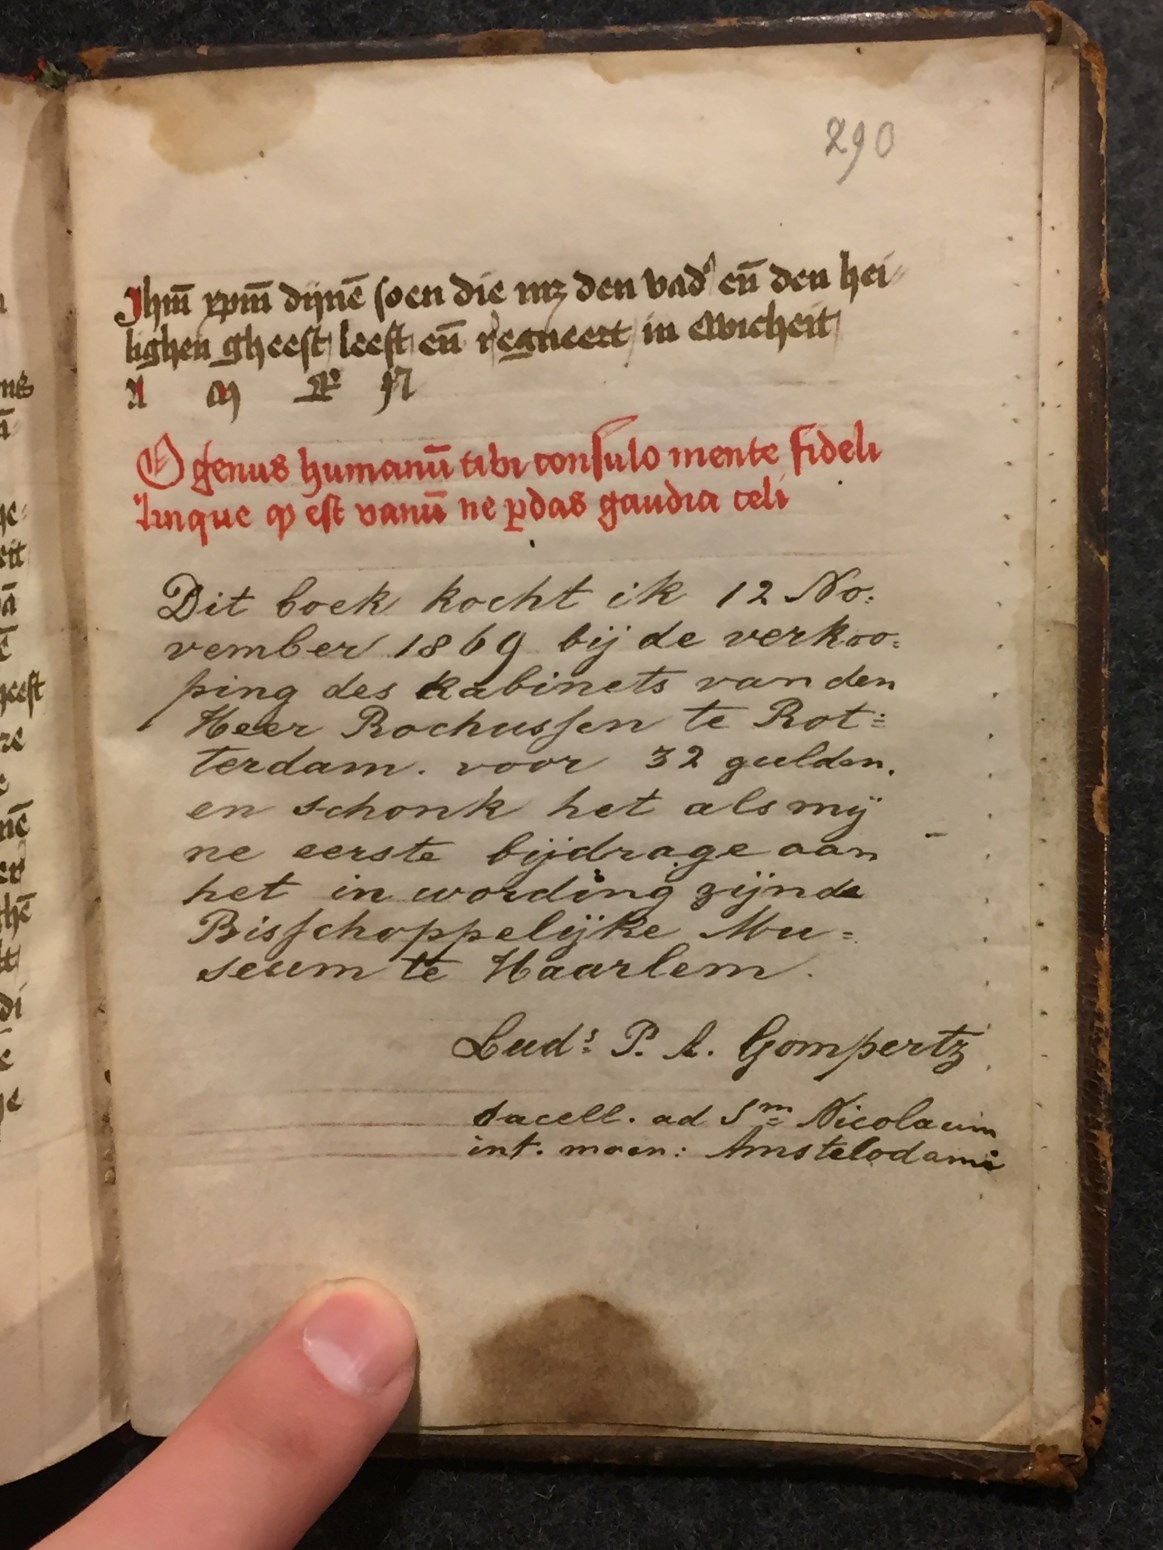 290
Jhm̄ xpm̄ dijnē soen die mꝫ den vad' eū den hei-
lighen gheest leest eū regneert in ewicheit
A M E N
O genus humanū tibi consulo mente fideli
linque ꝙ est vanū ne ꝑdas gaudia celi
Dit boek kocht ik 12 No:
vember 1869 bij de verkoo:
ping des kabinets van den
Heer Rochussen te Rot:
terdam. voor 32 gulden.
en schonk het als mij
ne eerste bijdrage aan
het in wording zijnde
Bisschoppelijke Mu:
seum te Haarlem.
Lud.s P. A. Gompertz
sacell. ad S.m Nicolaum
int. moen: Amstelodami